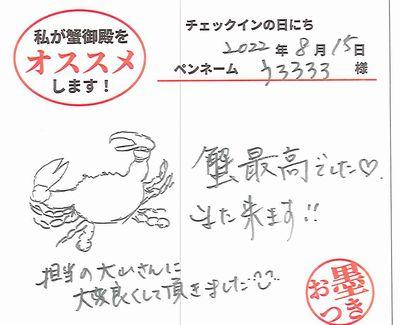 私が蟹御殿を
オススメ
します！
チェックインの日にち
2022年8月15日
ペンネーム うろろろろ 様
蟹最高でした♡.
また来ます!!
担当の大山さんに
大変良くして頂きました
お墨
つき